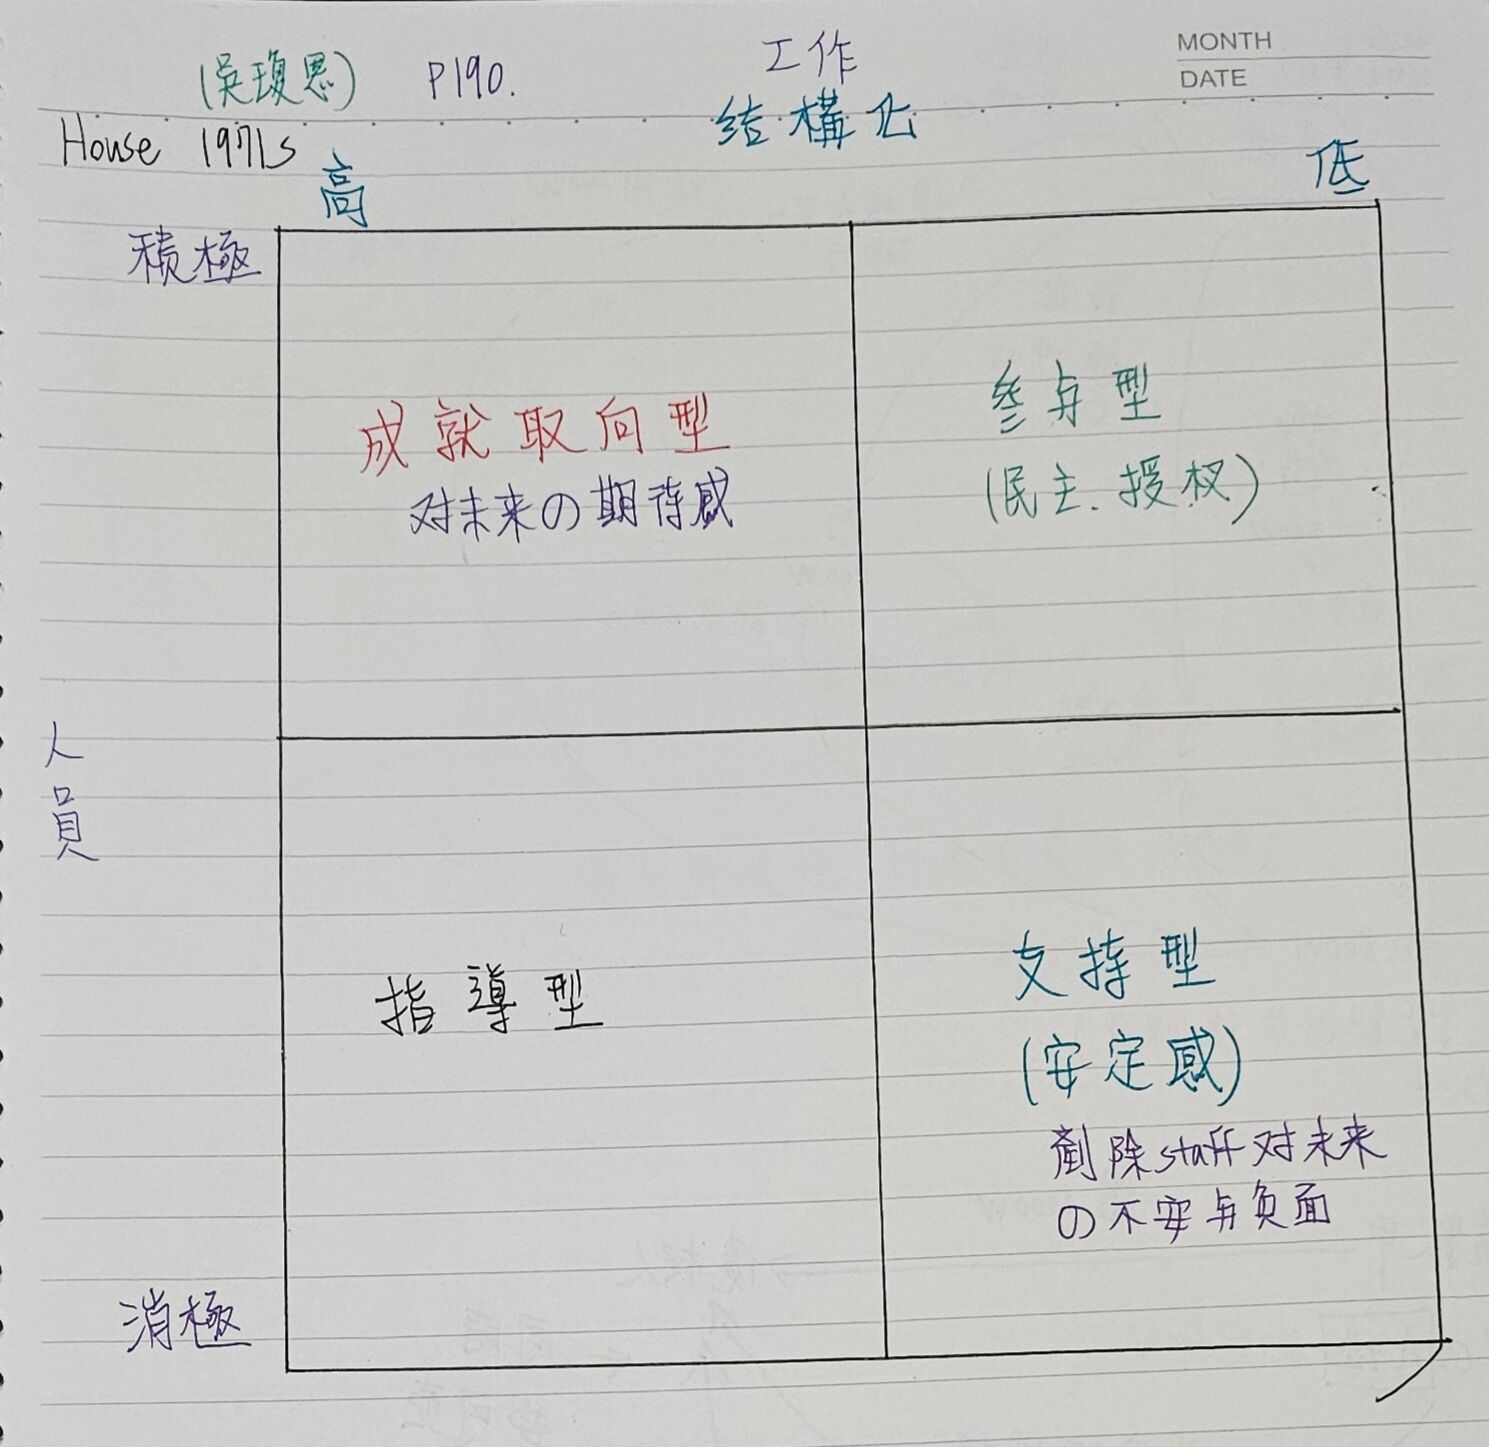 (吳瓊恩) P190.
工作
MONTH
DATE
结構化
House 1971s
高
低
積極
成就取向型
对未来の期待感
参与型
(民主、授权)
人員
指導型
支持型
(安定感)
剷除staff对未来
の不安与负面
消極